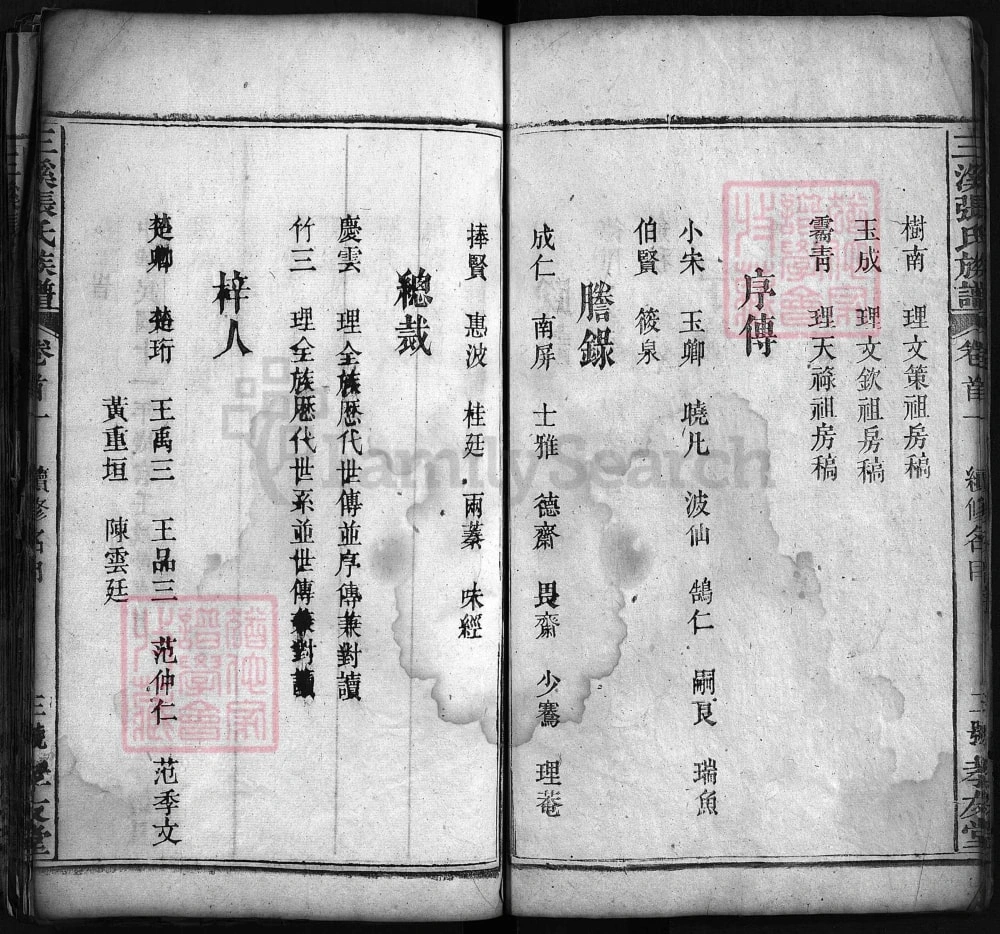 三溪張氏族譜 卷首一 續修名目 三號 孝友堂
樹南 理文策祖房稿
玉成 理文欽祖房稿
霱青 理天祿祖房稿
序傳
小宋 玉卿 曉凡 波仙 鵠仁 嗣艮 瑞魚
伯賢 筱泉
謄錄
成仁 南屏 士雅 德齋 畏齋 少騫 理菴
捧賢 惠波 桂廷 兩蓁 味經
總裁
慶雲 理全族歷代世傳並序傳兼對讀
竹三 理全族歷代世系並世傳兼對讀
梓人
楚卿 楚珩 王禹三 王品三 范仲仁 范季文
黃重垣 陳雲廷
三溪張氏族譜 卷首一 續修名目 三號 孝友堂
FamilySearch